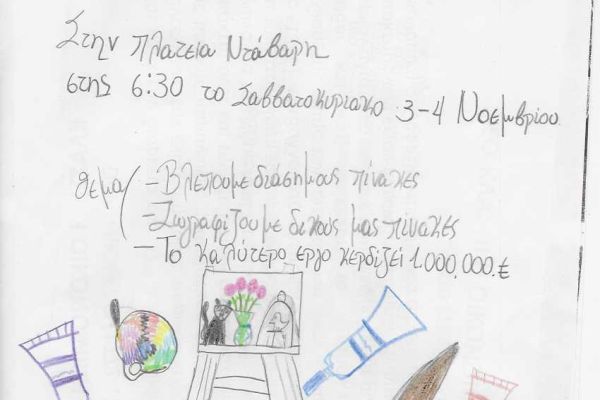 Στην πλατεια Νταβαρη
στης 6:30 το Σαββατοκυριακο 3-4 Νοεμβρίου
θεμα
- Βλεπουμε διάσημους πίνακες
- Ζωγραφίζουμε δικούς μας πίνακες
- Το καλύτερο εργο κερδίζει 1.000.000.€